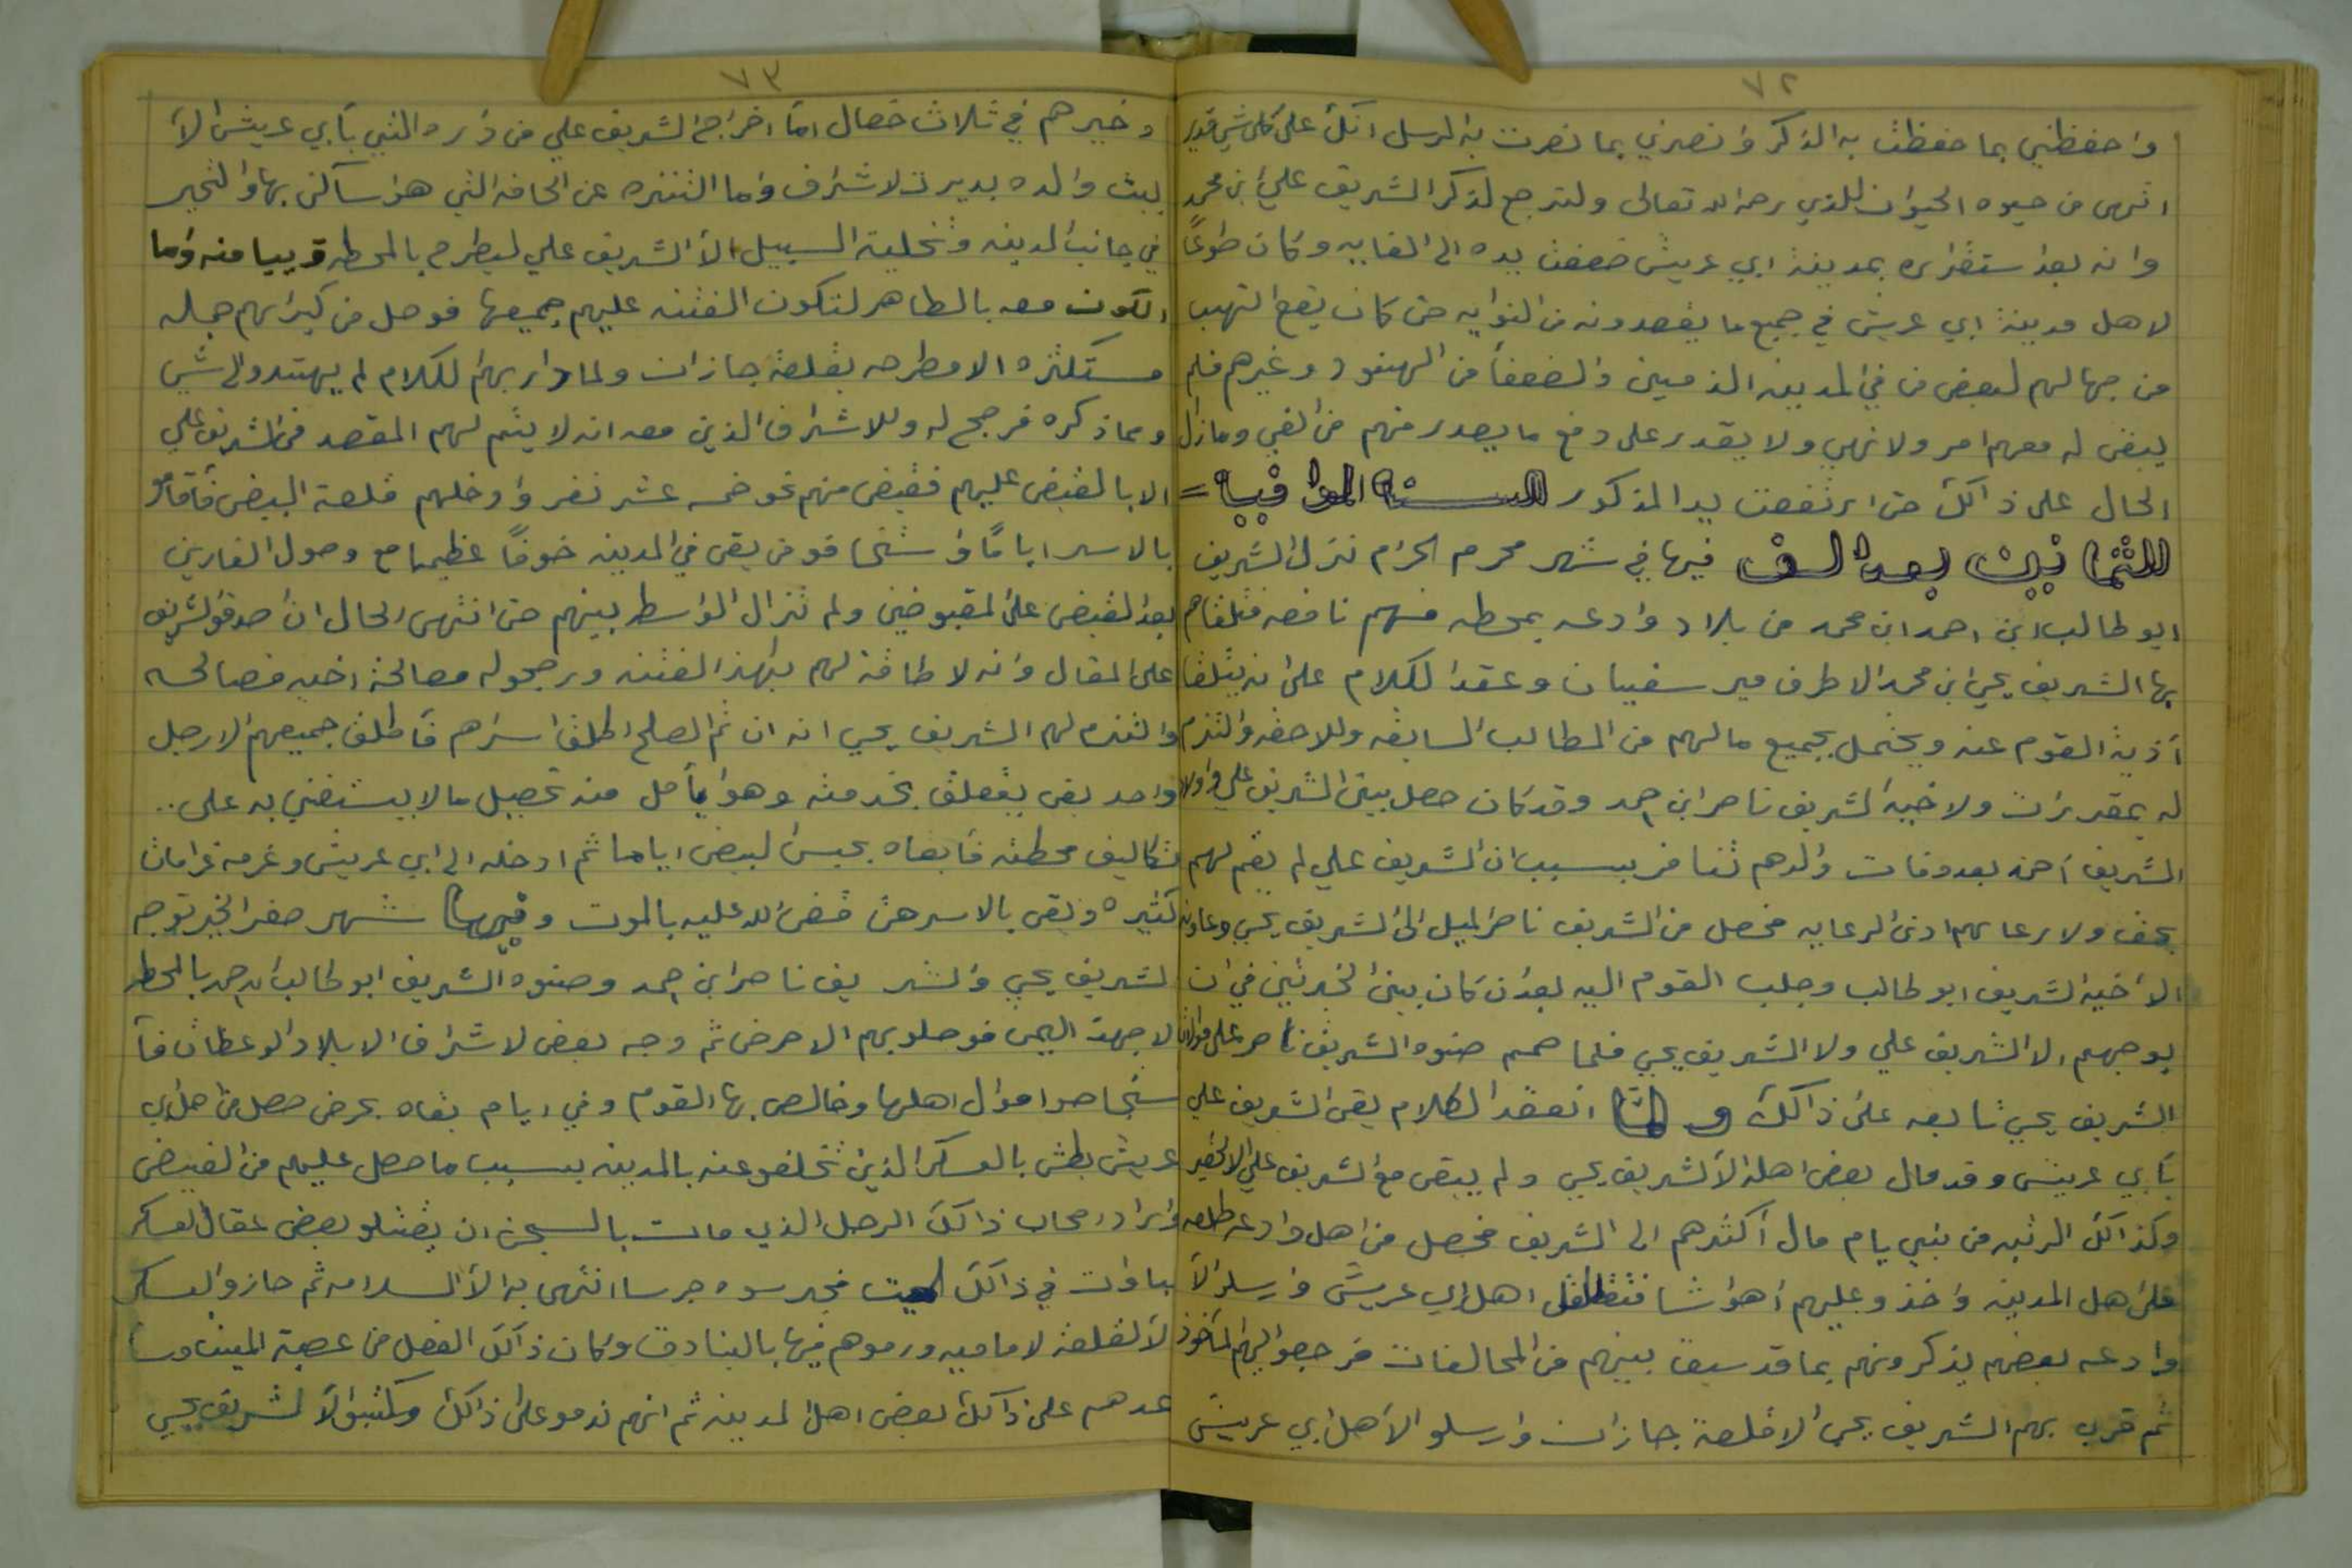 ٧٢
واحفظني بما حفظت به الذكر وانصرني بما نصرت به الرسل انك على كل شي قدير
انتهى من حيوه الحيوان للذي رحمه الله تعالى ولنرجع لذكر الشريف علي ابن محمد
وانه بعد استقراره بمدينة ابي عريش ضعفت يده الى الغايه وكان طوعًا
لاهل مدينة ابي عريش في جميع ما يقصدونه من النوايه حتى كان يقع النهب
من جهالهم لبعض من في المدينه الذميين والضعفا من الهنود وغيرهم فلم
يبقى له معهم امر ولا نهي ولا يقدر على دفع ما يصدر منهم من الغي ومازال
الحال على ذالك حتى ارتفعت يد المذكور السنة الموافيه =
للثمانين بعد الف فيها في شهر محرم الحرام نزل الشريف
ابو طالب ابن احمد ابن محمد من بلاد وادعه بمحطه منهم نافعه فتلقاهم
بها الشريف يحي ابن محمد الاطرف مير سفيان وعقد الكلام على انه يتلقا
أذية القوم عنه ويحتمل بجميع مالهم من المطالب السابقه وللاحقه والتزم
له بمقررات ولاخيه الشريف ناصر ابن احمد وقد كان حصل بين الشريف علي واولاد
الشريف أحمد بعد وفات والدهم تنافر بسبب ان الشريف علي لم يقم لهم
بحق ولا رعا لهم ادنى الرعايه فحصل من الشريف ناصر الميل الى الشريف يحي وعاونه
الا أخيه الشريف ابو طالب وجلب القوم اليه بعد ان كان بين الخيرتين في ان
يوجههم الا الشريف علي ولا الشريف يحي فلما صمم صنوه الشريف ناصر على موالات
الشريف يحي تابعه على ذالك ولما انعقد الكلام بقى الشريف علي
بأبي عريش وقد مال بعض اهله الا الشريف يحي ولم يبقى مع الشريف علي الا اليسير
وكذالك الرتبه من بني يام مال أكثرهم الى الشريف فحصل من اهل وادعه طلعه
على اهل المدينه واخذو عليهم أهواشا اهل ابي عريش وارسلو الا
وادعه بعضهم يذكرونهم بما قد سبق بينهم من المحالفات فرجعوا اليهم المأخوذ
ثم قرب بهم الشريف يحي الا قلعة جازان وارسلو الا اهل ابي عريش
٧٣
وخيرهم في ثلاث خصال اما اخراج الشريف علي من داره التي بأبي عريش الا
بيت والده بديرة الاشراف واما التنزه عن الحافه التي هو ساكن بها والتحير
في جانب المدينه وتخلية السبيل الا الشريف علي ليطرح بالمحطه قريبا منه واما
الكون معه بالظاهر لتكون الفتنه عليهم جميعها فوصل من كبرائهم جماله
مستكثره الا مطرحه بقلعة جازان ولما دار بهم الكلام لم يهتدو الى شي
ومما ذكره فرجح له وللاشراف الذين معه انه لا يتم لهم المقصد من الشريف علي
الا بالقبض عليهم فقبض منهم نحو خمسه عشر نفر وادخلهم قلعة البيض فأقامو
بالاسر اياماً و من بقى في المدينه خوفاً عظيما مع وصول الغارين
بعد القبض على المقبوضين ولم تزال الوسط بينهم حتى انتهى الحال ان صدقوا الشريف
على المقال وانه لا طاقة لهم بهذا الفتنه ورجحوله مصالحة اخيه فصالحه
والتزم لهم الشريف يحي انه ان تم الصلح اطلق اسراهم فأطلق جميعهم الا رجل
واحد بقى يتعلق بخدمته وهو يأمل منه تحصيل مالا يستعني به على ..
تكاليف محطته فأبقاه بحبس البيض اياما ثم ادخله الى ابي عريش وغرمه غرامات
كثيره وبقى بالاسر حتى قضى الله عليه بالموت وفيها شهر صفر الخير توجه
الشريف يحي والشريف ناصر ابن احمد وصنوه الشريف ابو طالب ابن احمد بالمحطه
لا جهة اليمن فوصلو بهم الا حرض ثم وجه بعض لاشراف الا بلاد الوعظات فأ
ستجاحو اموال اهلها وخالص بها القوم وفي ايام بقاه بحرض حصل من اهل ابي
عريش بطش بالعسكر الذين تخلفو عنه بالمدينه بسبب ما حصل عليهم من القبض
واراد اصحاب ذالك الرجل الذي مات بالسجن ان يقتلو بعض عقال العسكر
في ذالك الميت انتهى به الا السلامه ثم حازو العسكر
لا القلعة لاماميه ورموهم فيها بالبنادق وكان ذالك الفعل من عصبة الميت وسا
عدهم على ذالك بعض اهل المدينه ثم انهم ندمو على ذالك وكتبو الا الشريف يحي